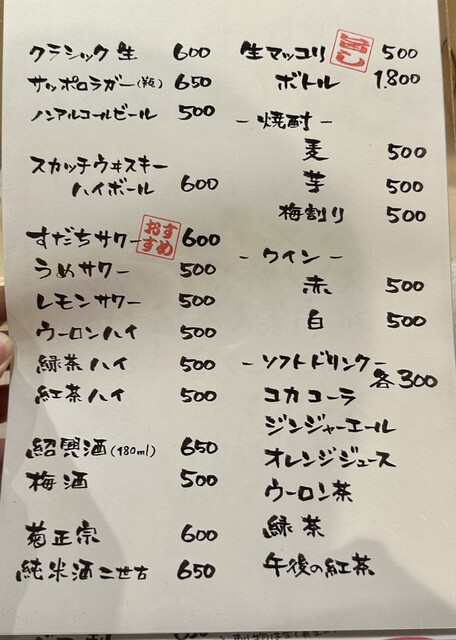 クラシック生 600
サッポロラガー(瓶) 650
ノンアルコールビール 500
スカッチウヰスキー
ハイボール 600
すだちサワー おすすめ 600
うめサワー 500
レモンサワー 500
ウーロンハイ 500
緑茶ハイ 500
紅茶ハイ 500
紹興酒(180ml) 650
梅酒 500
菊正宗 600
純米酒二世古 650
生マッコリ 500
ボトル 1.800
-焼酎-
麦 500
芋 500
梅割り 500
-ワイン-
赤 500
白 500
-ソフトドリンク-
各300
コカコーラ
ジンジャーエール
オレンジジュース
ウーロン茶
緑茶
午後の紅茶